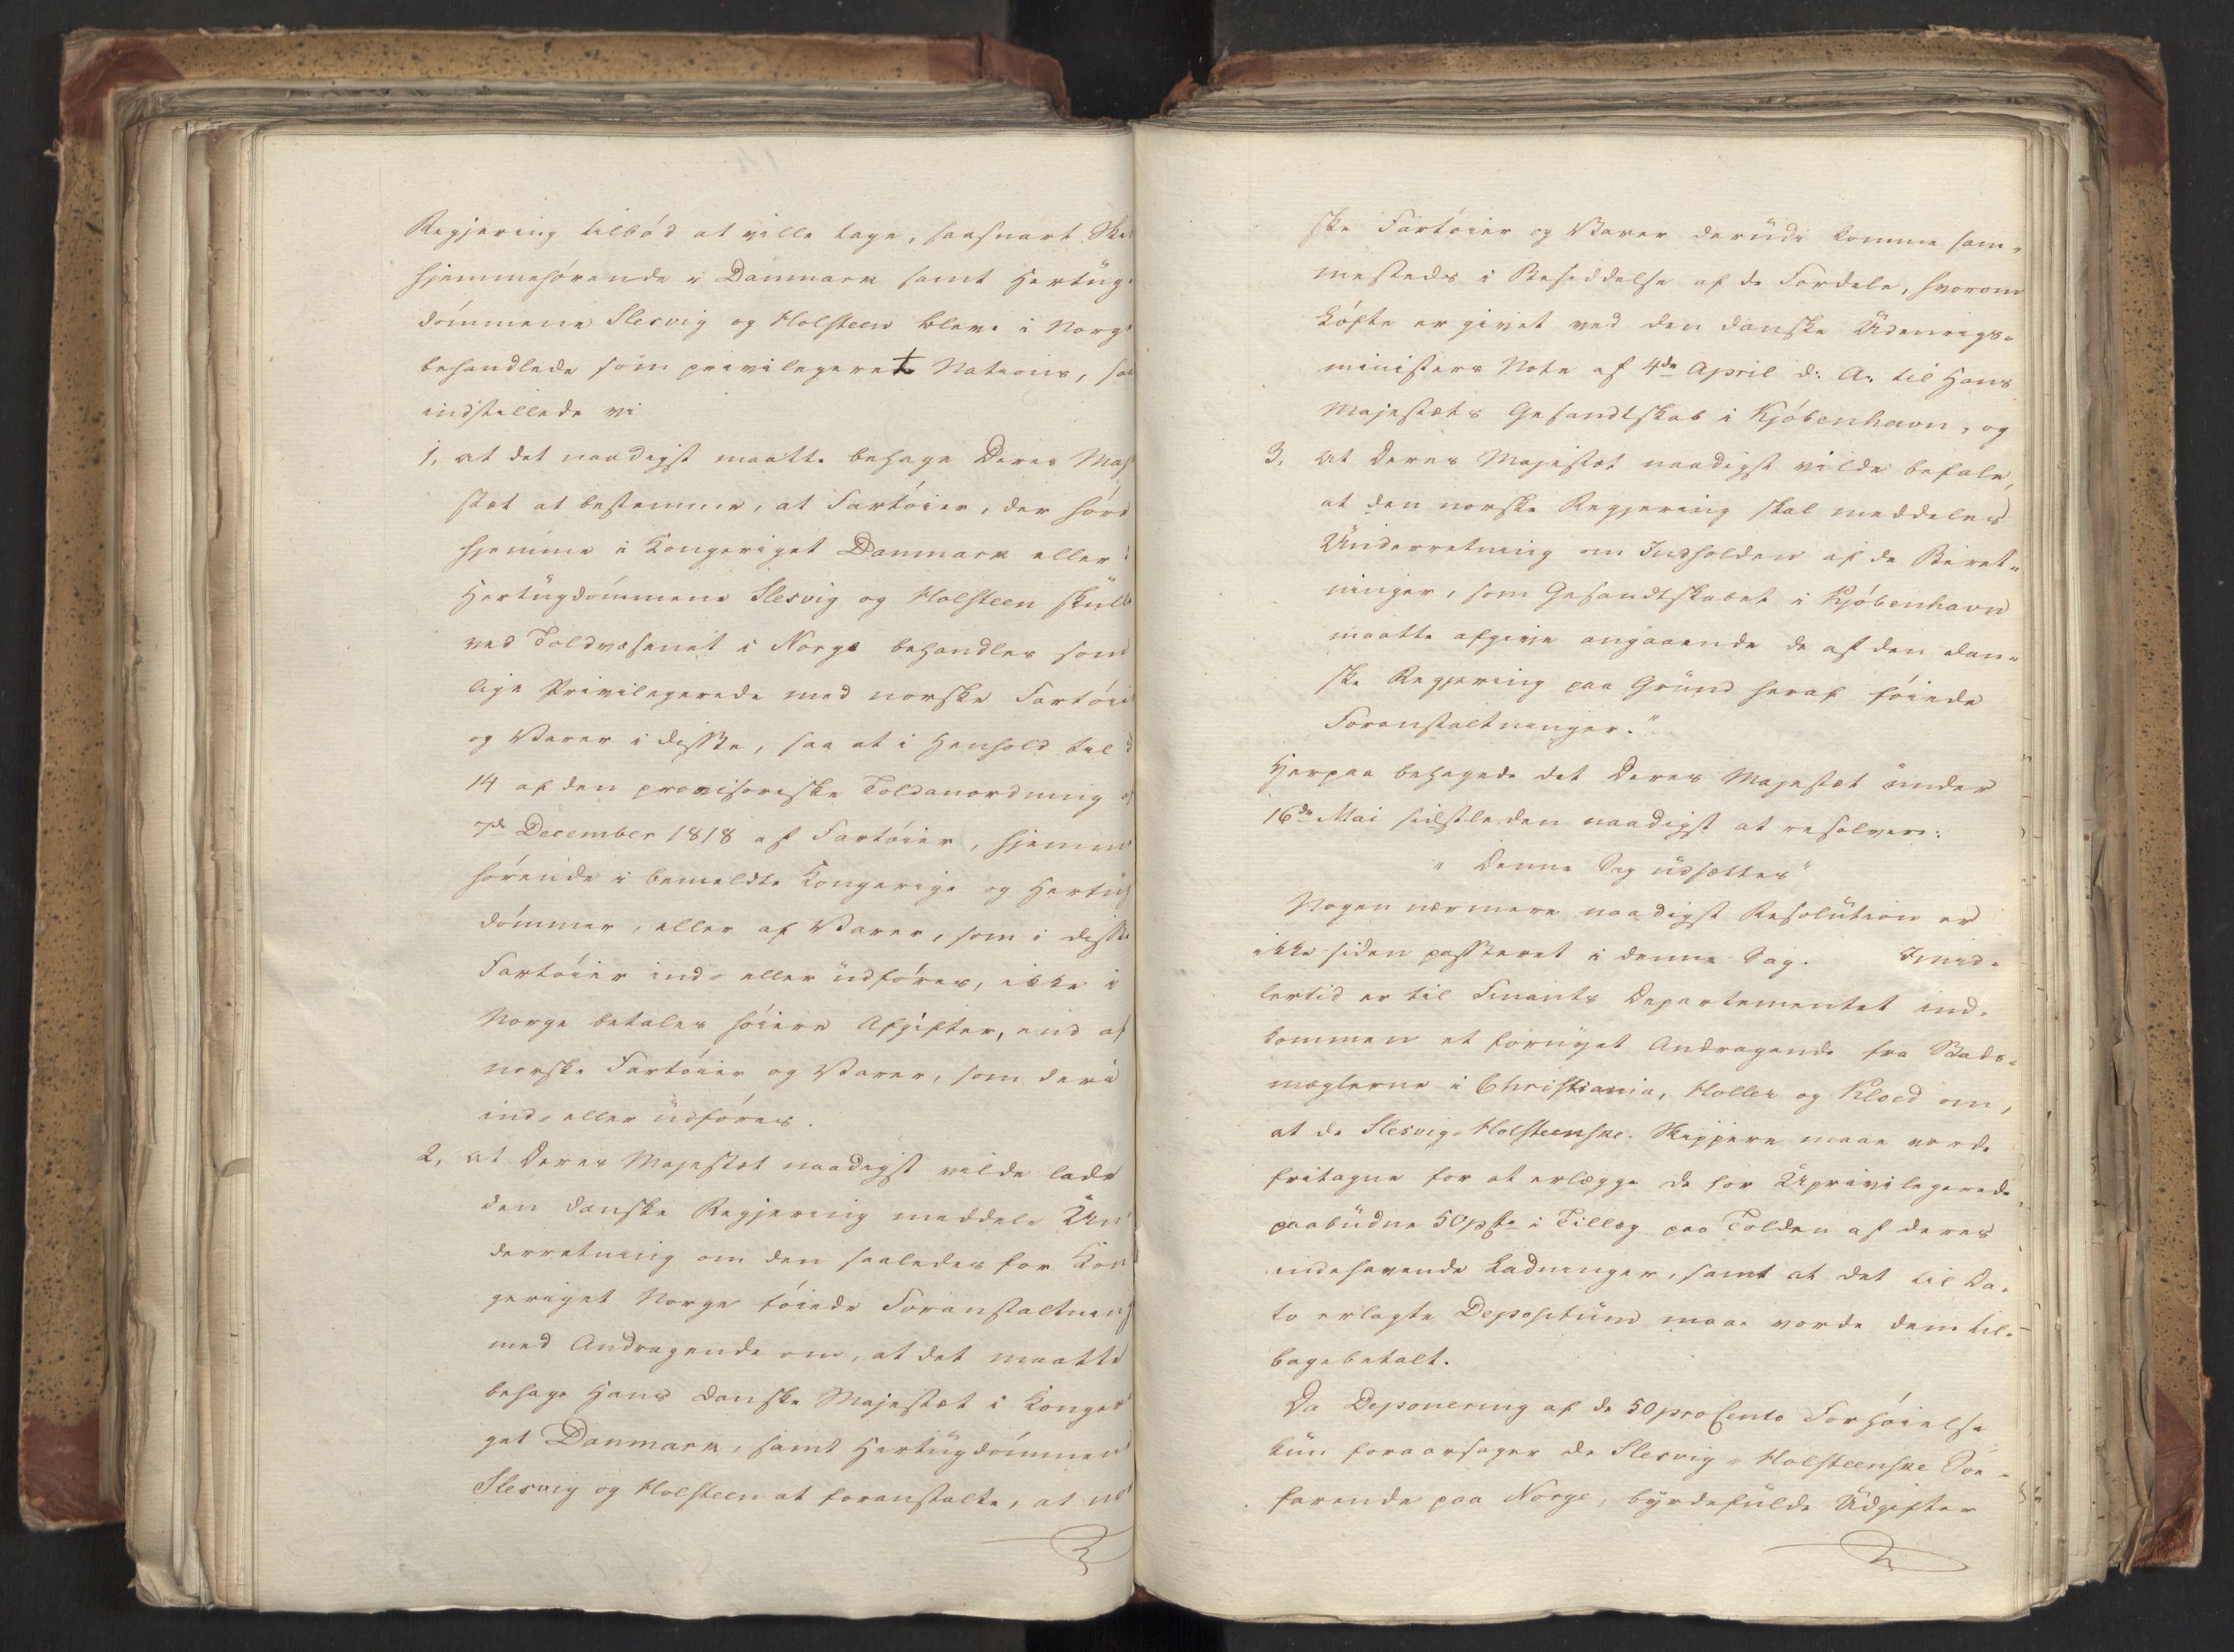 Regjering tilbød at ville tage, saasnart Ski
hjemmehørende i Danmark samt Hertug-
dømmene Slesvig og Holsteen bleve i Norge
behandlede som privilegeret Nations, saa
indstillede vi
1, at det naadigst maatte behage Deres Maj
stæt at bestemme, at Fartøier, der høre
hjemme i Kongeriget Danmark eller i
Hertugdømmene Slesvig og Holsteen skulle
ved Toldvæsenet i Norge behandles som
lige Privilegerede med norske Fartøie
og Varer i disse, saa at i Henhold til §
14 af den provisoriske Toldanordning af
7de December 1818 af Fartøier, hjemme
hørende i bemeldte Kongerige og Hertug
dømmer, eller af Varer, som i disse
Fartøier ind- eller udføres, ikke i
Norge betales høiere Afgifter, end af
norske Fartøier og Varer, som deri
ind- eller udføres.
2, at Deres Majestæt naadigst vilde lade
den danske Regjering meddele Un
derretning om den saaledes for Kon
geriget Norge føiede Foranstaltning
med Andragende om, at det maatte
behage Hans danske Majestæt i Konger
get Danmark, samt Hertugdømmene
Slesvig og Holsteen at foranstalte, at no
ske Fartøier og Varer derudi komme sam-
mesteds i Besiddelse af de Fordele, hvorom
Løfte er givet ved den danske Udenrigs-
ministers Note af 4de April d: A: til Hans
Majestæts Gesandtskab i Kjøbenhavn, og
3, at Deres Majestæt naadigst vilde befale,
at den norske Regjering skal meddeles
Underretning om Indholden af de Beret-
ninger, som Gesandtskabet i Kjøbenhavn
maatte afgive angaaende de af den dan-
ske Regjering paa Grund heraf føiede
Foranstaltninger."
Herpaa behagede det Deres Majestæt under
16de Mai sidstleden naadigst at resolvere:
"Denne Sag udsættes"
Nogen nærmere naadigst Resolution er
ikke siden passeret i denne Sag. Imid-
lertid er til Finants Departementet ind-
kommen et fornyet Andragende fra Stads-
mæglerne i Christiania, Møller og Kloed om,
at de Slesvig-Holsteenske Skippere maae vorde
fritagne for at erlægge de for Uprivilegerede
paabudne 50 pCt. i Tillæg paa Tolden af deres
indehavende Ladninger, samt at det til Da-
to erlagte Depositum maae vorde dem til-
bagebetalt.
Da Deponering af de 50 pro Cento Forhøielse
kun foraarsager de Slesvig-Holsteenske Søe-
farende paa Norge, byrdefulde Udgifter